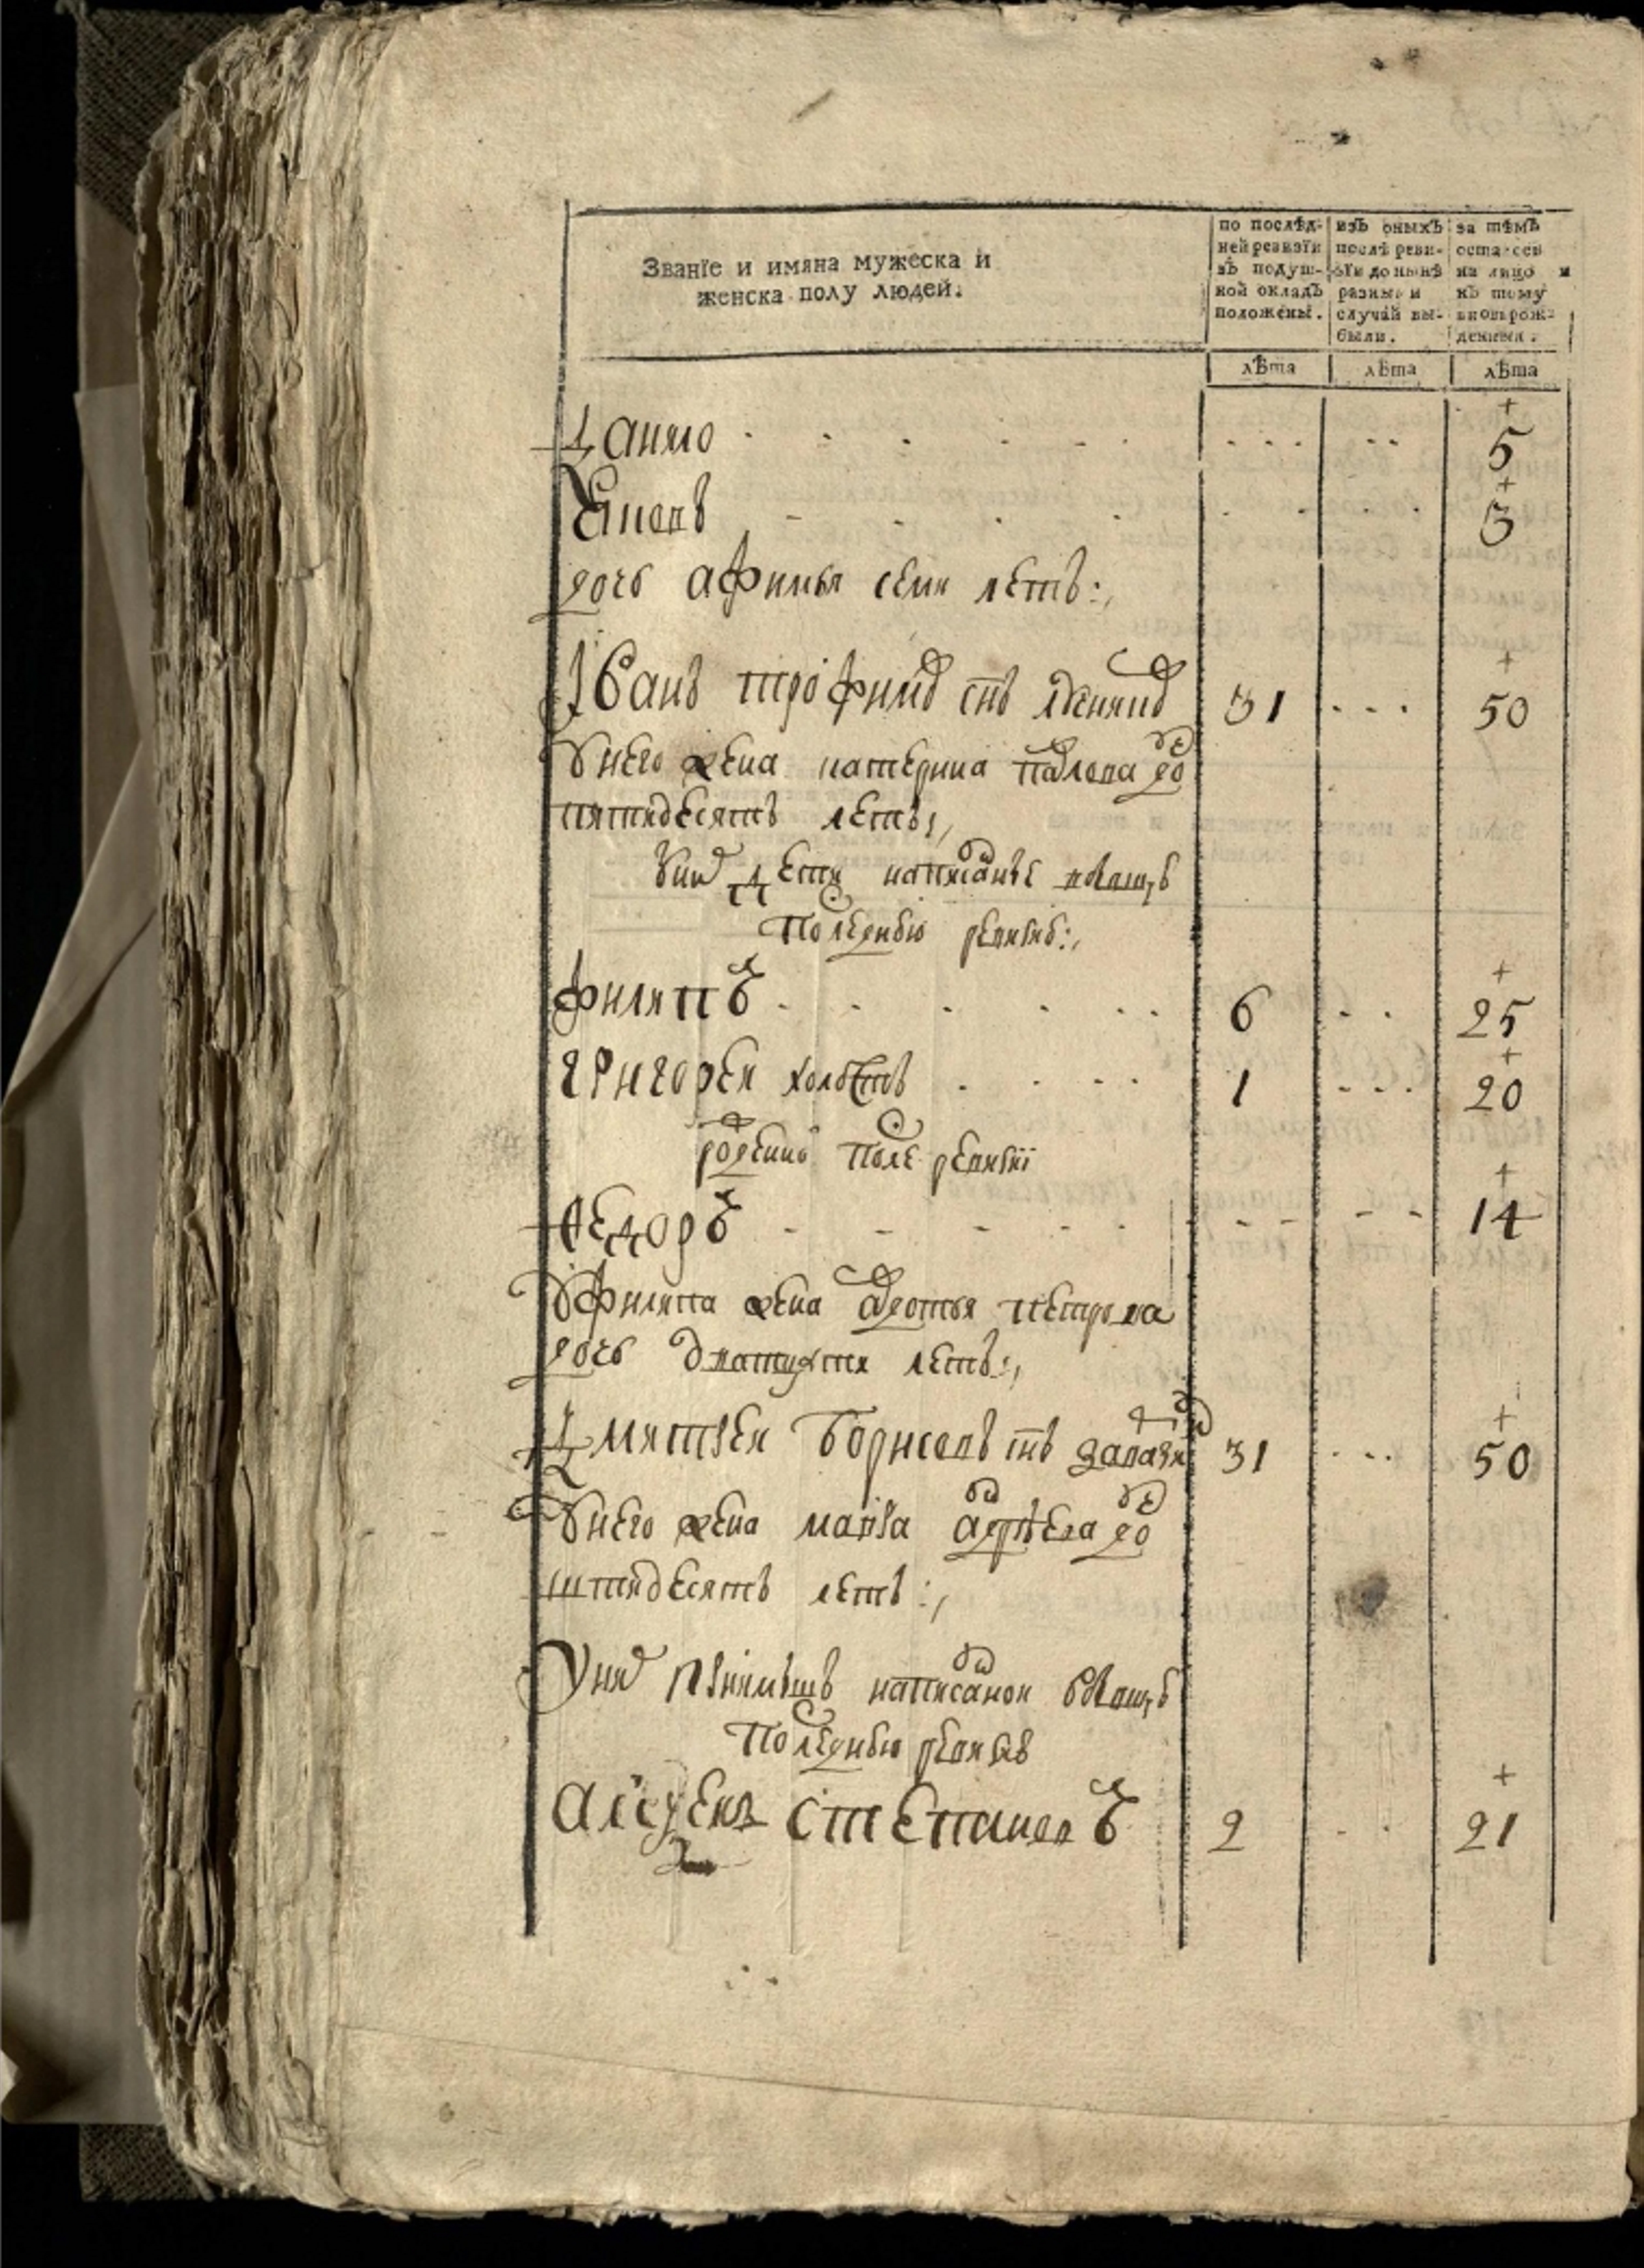 Званїе и имяна мужеска и
женска полу людей.
по послѣд-
ней ревизїи
въ подуш-
ной окладъ
положены.
изъ оныхъ
послѣ реви-
зїи до нынѣ
разными
случаи вы-
были.
за тѣмъ
осталсей
на лицо и
къ тому
вновьрож-
денныя.
лѣта лѣта лѣта
Данило 5
3
дочь афимья семи летъ
Іванъ трофимов снъ 31 50
Унего жена катерина павлова до
пятидесятъ летъ
Уних дети написанъе
Последнью ревизию
филипъ 6 25
григорей холостъ 1 20
рожении После ревизиї
Федоръ 14
Уфилипа жена авдотья петрова
дочь дватцати летъ
Дмитрей Борисовъ снъ 31 50
Унего жена марѳа андреева до
пятидесятъ летъ
Уних написанои
Последнью ревизию
алексей степановъ 2 21